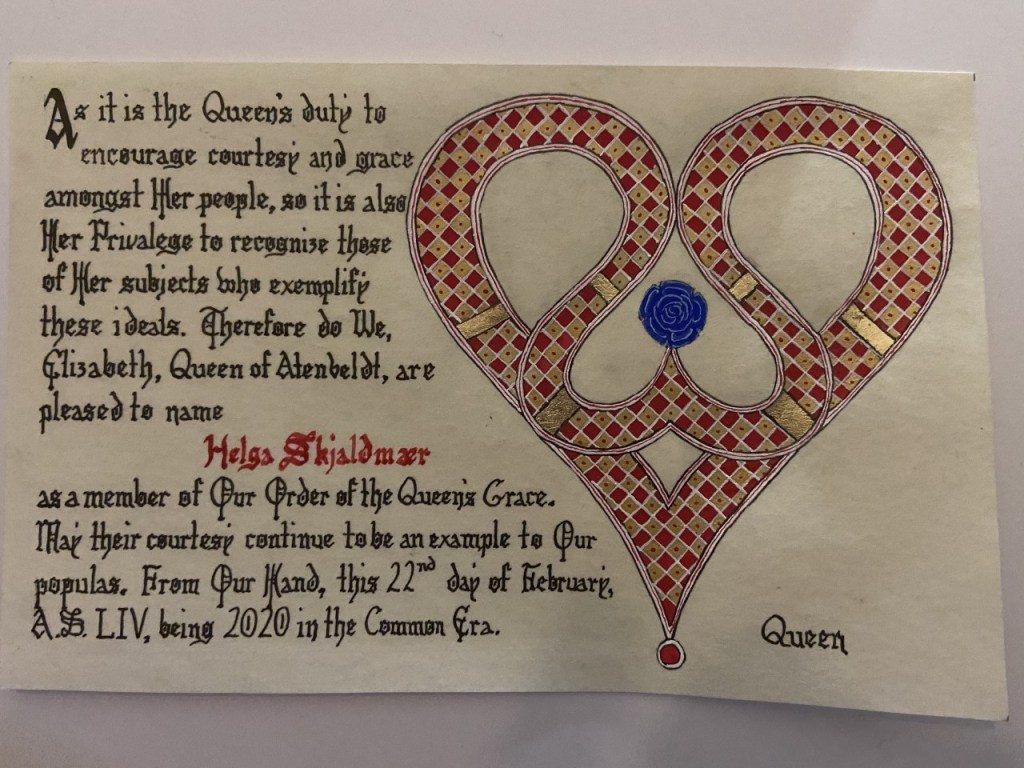 As it is the Queen's duty to
encourage courtesy and grace
amongst Her people, so it is also
Her Privalege to recognize those
of Her subjects who exemplify
these ideals. Therefore do We,
Elizabeth, Queen of Atenveldt, are
pleased to name
Helga Skjaldmær
as a member of Our Order of the Queen's Grace.
May their courtesy continue to be an example to Our
populas. From Our Hand, this 22nd day of February,
A.S. LIV, being 2020 in the Common Era.
Queen